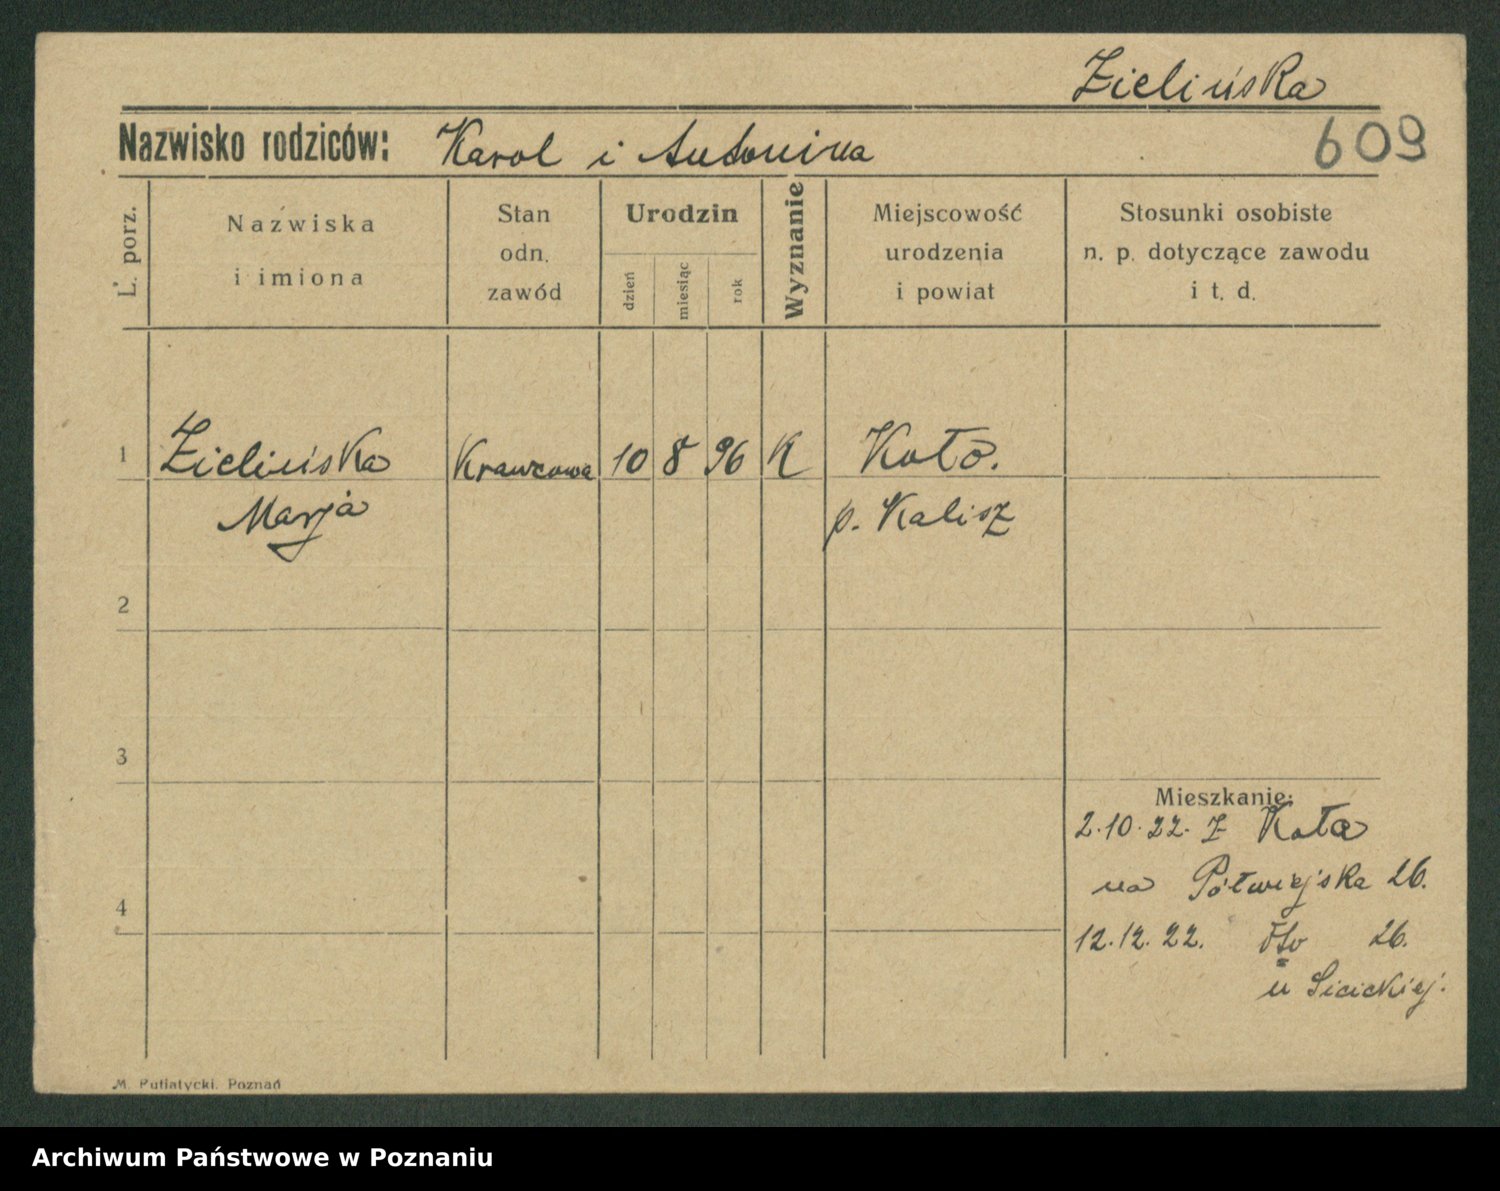 Zielińska
Nazwisko rodziców: Karol i Antonina
609
L. porz.
Nazwiska
i imiona
Stan
odn.
zawód
Urodzin
dzień
miesiąc
rok
Wyznanie
Miejscowość
urodzenia
i powiat
Stosunki osobiste
n. p. dotyczące zawodu
i t. d.
1 Zielińska Krawcowa 10 8 96 K Koło.
Marja p. Kalisz
2
3
Mieszkanie:
2.10.22. z Koła
na Półwiejska 26.
4
12.12.22. dto 26.
u Sicickiej.
M. Putiatycki. Poznań
Archiwum Państwowe w Poznaniu